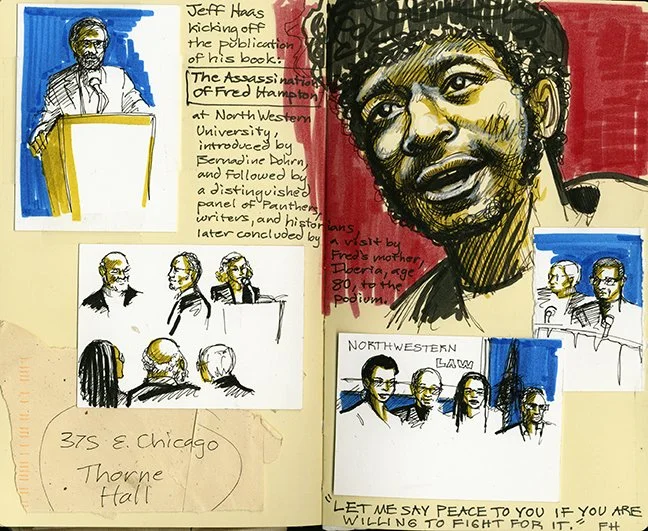 Jeff Haas
kicking off
the publication
of his book:
The Assassination
of Fred Hampton
at NorthWestern
University,
introduced by
Bernadine Dohrn,
and followed by
a distinguished
panel of Panthers,
writers, and historians
later concluded by
a visit by
Fred's mother,
Iberia, age
80, to the
podium.
NORTHWESTERN
LAW
375 E. Chicago
Thorne
Hall
"LET ME SAY PEACE TO YOU IF YOU ARE
WILLING TO FIGHT FOR IT." FH